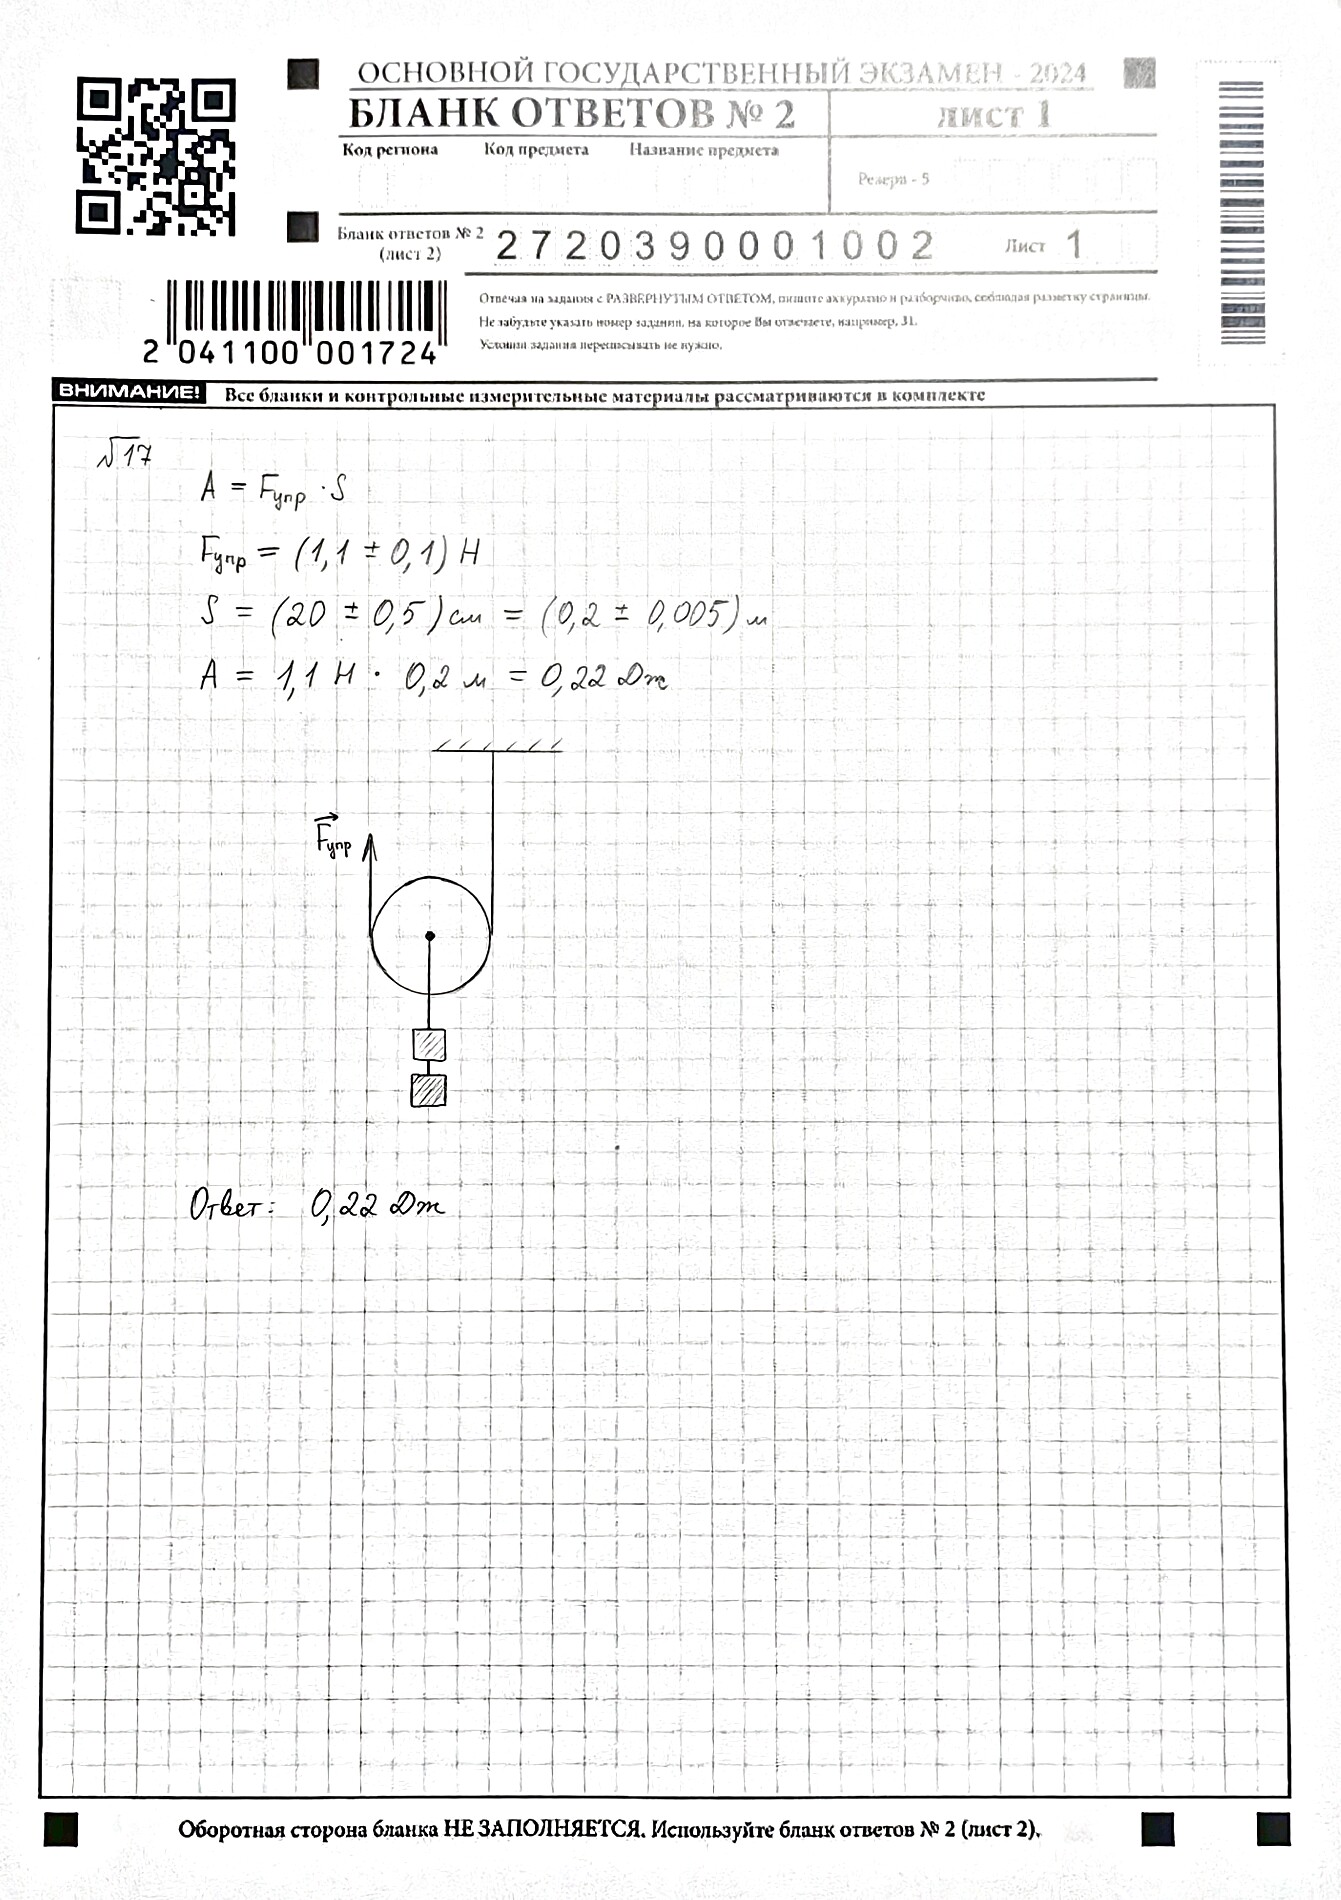 ОСНОВНОЙ ГОСУДАРСТВЕННЫЙ ЭКЗАМЕН - 2024
БЛАНК ОТВЕТОВ № 2
ЛИСТ 1
Код региона Код предмета Название предмета
Резерв - 5
Бланк ответов № 2
(лист 2)
2720390001002
Лист 1
Отвечая на задания с РАЗВЕРНУТЫМ ОТВЕТОМ, пишите аккуратно и разборчиво, соблюдая разметку страницы.
Не забудьте указать номер задания, на которое Вы отвечаете, например, 31.
Условия задания переписывать не нужно.
2 041100 001724
ВНИМАНИЕ! Все бланки и контрольные измерительные материалы рассматриваются в комплекте
№17
A = Fупр · S
Fупр = (1,1 ± 0,1) Н
S = (20 ± 0,5) см = (0,2 ± 0,005) м
A = 1,1 Н · 0,2 м = 0,22 Дж
Fупр
Ответ: 0,22 Дж
Оборотная сторона бланка НЕ ЗАПОЛНЯЕТСЯ. Используйте бланк ответов № 2 (лист 2).